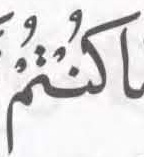 ما كُنْتُمْ